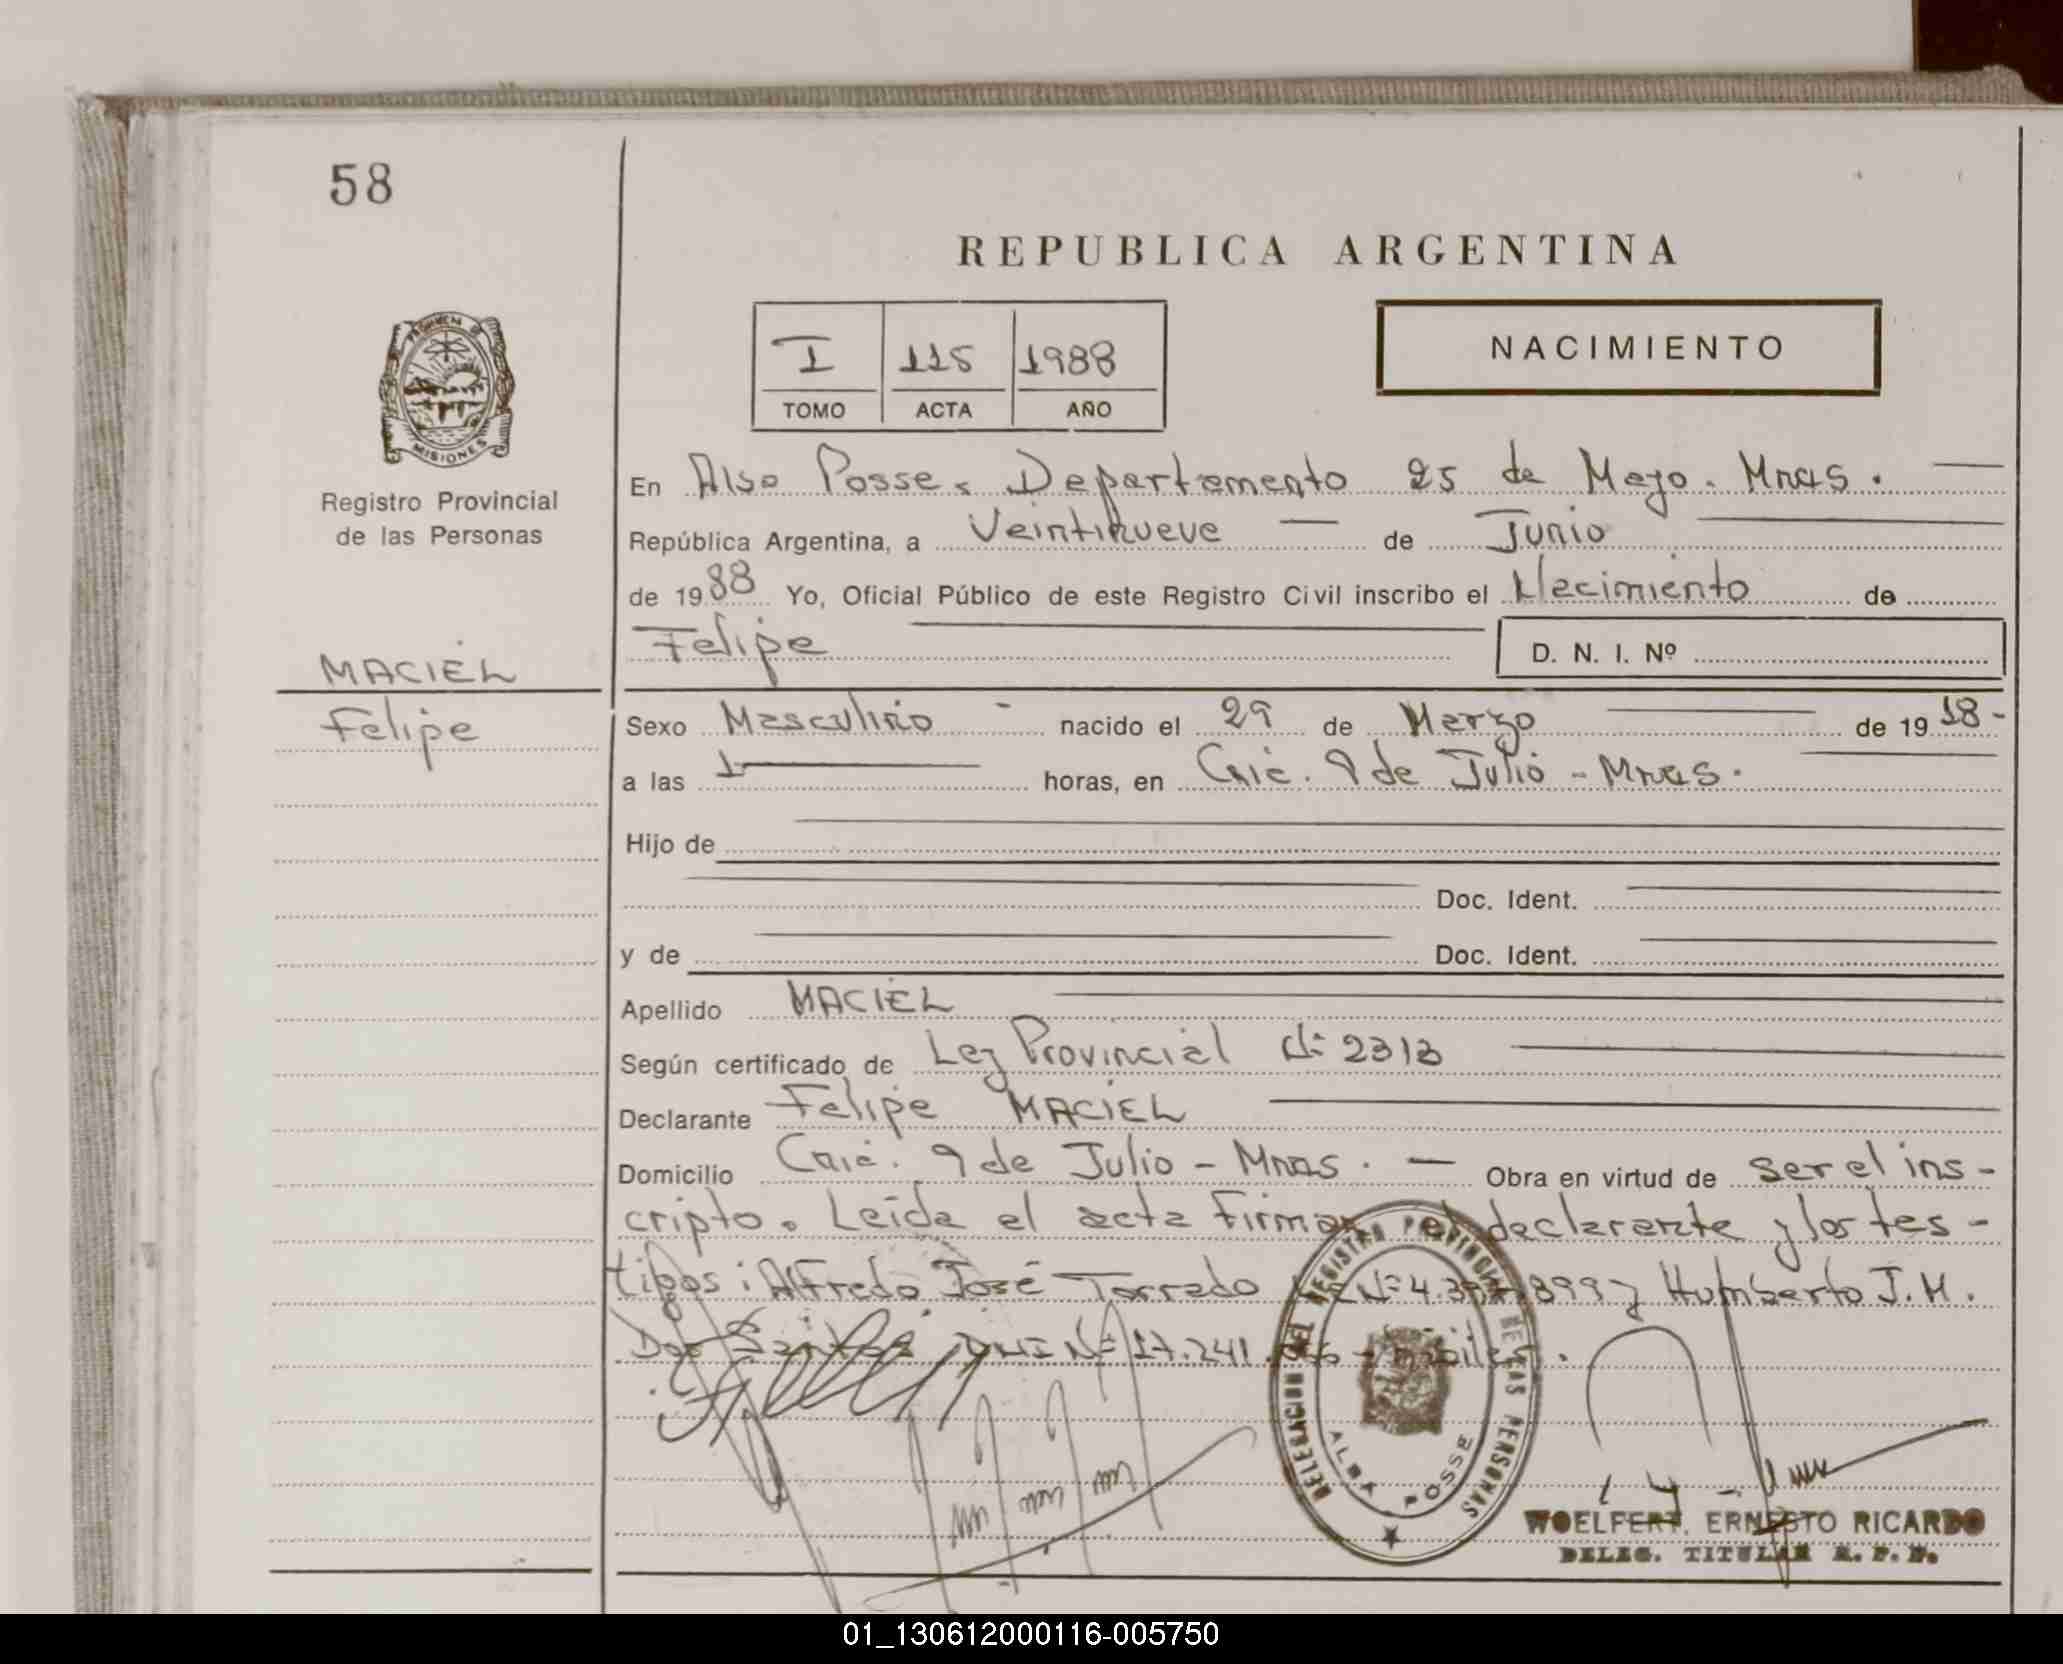 58
REPUBLICA ARGENTINA
PROVINCIA DE
MISIONES
Registro Provincial
de las Personas
I 115 1988
TOMO ACTA AÑO
NACIMIENTO
En Alba Posse. Departamento 25 de Mayo. Mnes.
República Argentina, a Veintinueve de Junio
de 1988 Yo, Oficial Público de este Registro Civil inscribo el Nacimiento de
Felipe D. N. I. Nº
MACIEL
Felipe
Sexo Masculino - nacido el 29 de Marzo de 19 18-
a las 1 horas, en Cnia. 9 de Julio - Mnes.
Hijo de
Doc. Ident.
y de Doc. Ident.
Apellido MACIEL
Según certificado de Ley Provincial Nº 2313
Declarante Felipe MACIEL
Domicilio Cnia. 9 de Julio - Mnes. - Obra en virtud de ser el ins-
cripto. Leída el acta Firman el declarante y los tes-
tigos: Alfredo José Torrado Nº 4. y Humberto J. M.
Dos Santos DNI Nº 17.241.
DELEGACION DEL REGISTRO PROVINCIAL DE LAS PERSONAS
ALBA POSSE
WOELFERT, ERNESTO RICARDO
DELEG. TITULAR R. P. P.
01_130612000116-005750